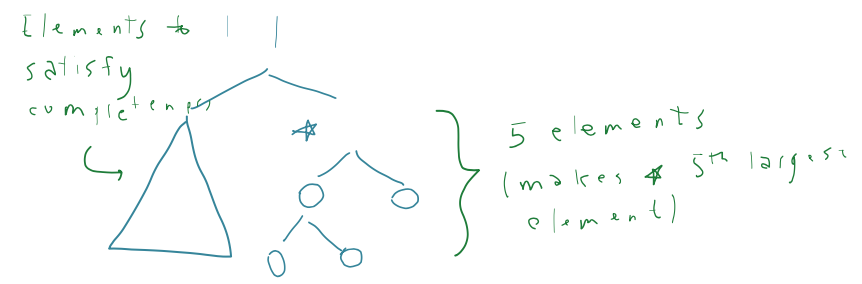 Elements to
satisfy
completeness
5 elements
(makes ☆ 5th largest
element)